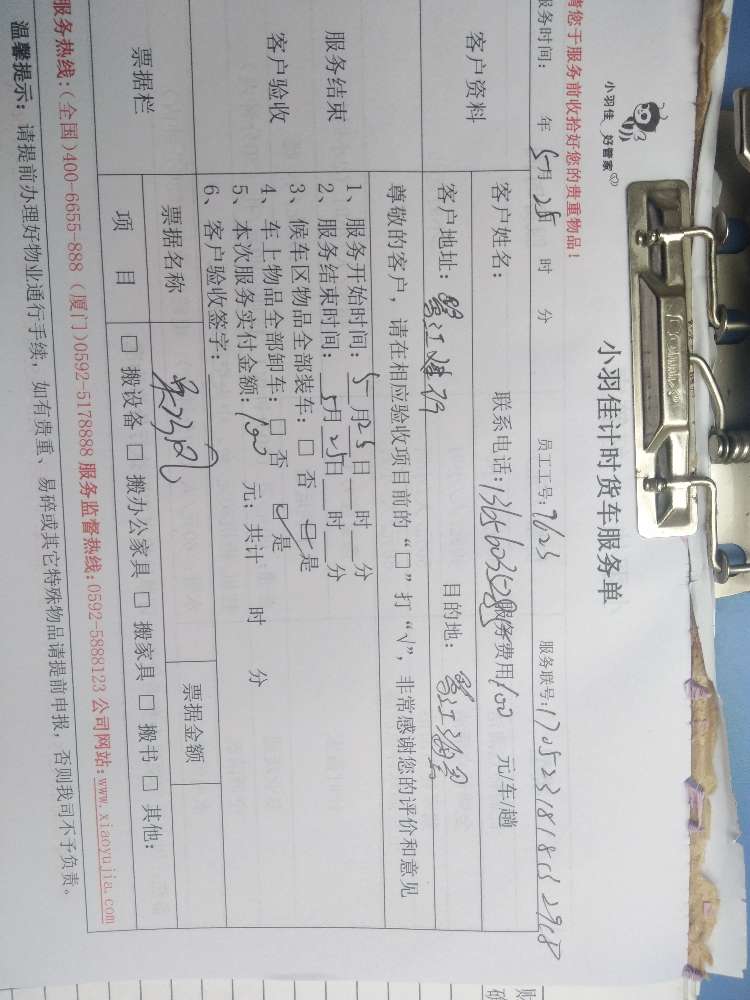 小羽佳 好管家
小羽佳计时货车服务单
请您于服务前收拾好您的贵重物品!
服务时间: 年 5月 25 时 分 员工工号:7623 服务联号:
客户资料
客户姓名: 联系电话: 服务费用100 元/车/趟
客户地址: 目的地:
尊敬的客户,请在相应验收项目前的“□”打“√”,非常感谢您的评价和意见
服务结束
客户验收
1、服务开始时间:5月25日 时 分
2、服务结束时间:5月25日 时 分
3、候车区物品全部装车:□ 否 ☑ 是
4、车上物品全部卸车:□ 否 ☑ 是
5、本次服务实付金额:100 元; 共计 时 分
6、客户验收签字:
票据栏
票据名称 票据金额
项 目 □ 搬设备 □ 搬办公家具 □ 搬家具 □ 搬书 □ 其他:
服务热线:(全国)400-6655-888 (厦门)0592-5178888 服务监督热线:0592-5888123 公司网站:www.xiaoyujia.com
温馨提示: 请提前办理好物业通行手续, 如有贵重、易碎或其它特殊物品请提前申报, 否则我司不予负责。